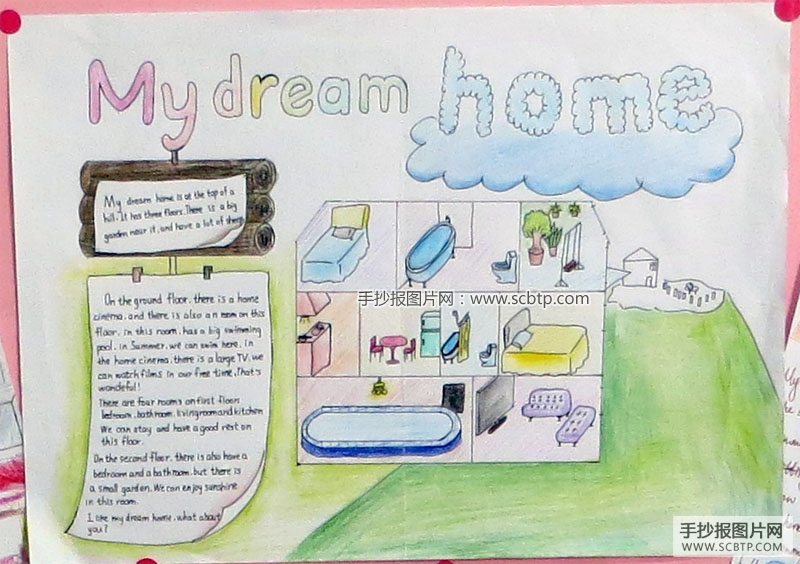 My dream home
My dream home is at the top of a
hill. It has three floors. There is a big
garden near it, and have a lot of sheep
On the ground floor, there is a home
cinema, and there is also an room on this
floor, in this room, has a big swimming
pool, in Summer, we can swim here. In
the home cinema, there is a large TV, we
can watch films in our free time, That's
wondeful!
There are four rooms on first floor:
bedroom, bathroom, livingroom and kitchen
We can stay and have a good rest on
this floor.
On the second floor, there is also have a
bedroom and a bathroom, but there is
a small garden. We can enjoy sunshine
in this room.
I like my dream home, what about
you?
手抄报图片网：www.scbtp.com
手抄报图片网
WWW.SCBTP.COM